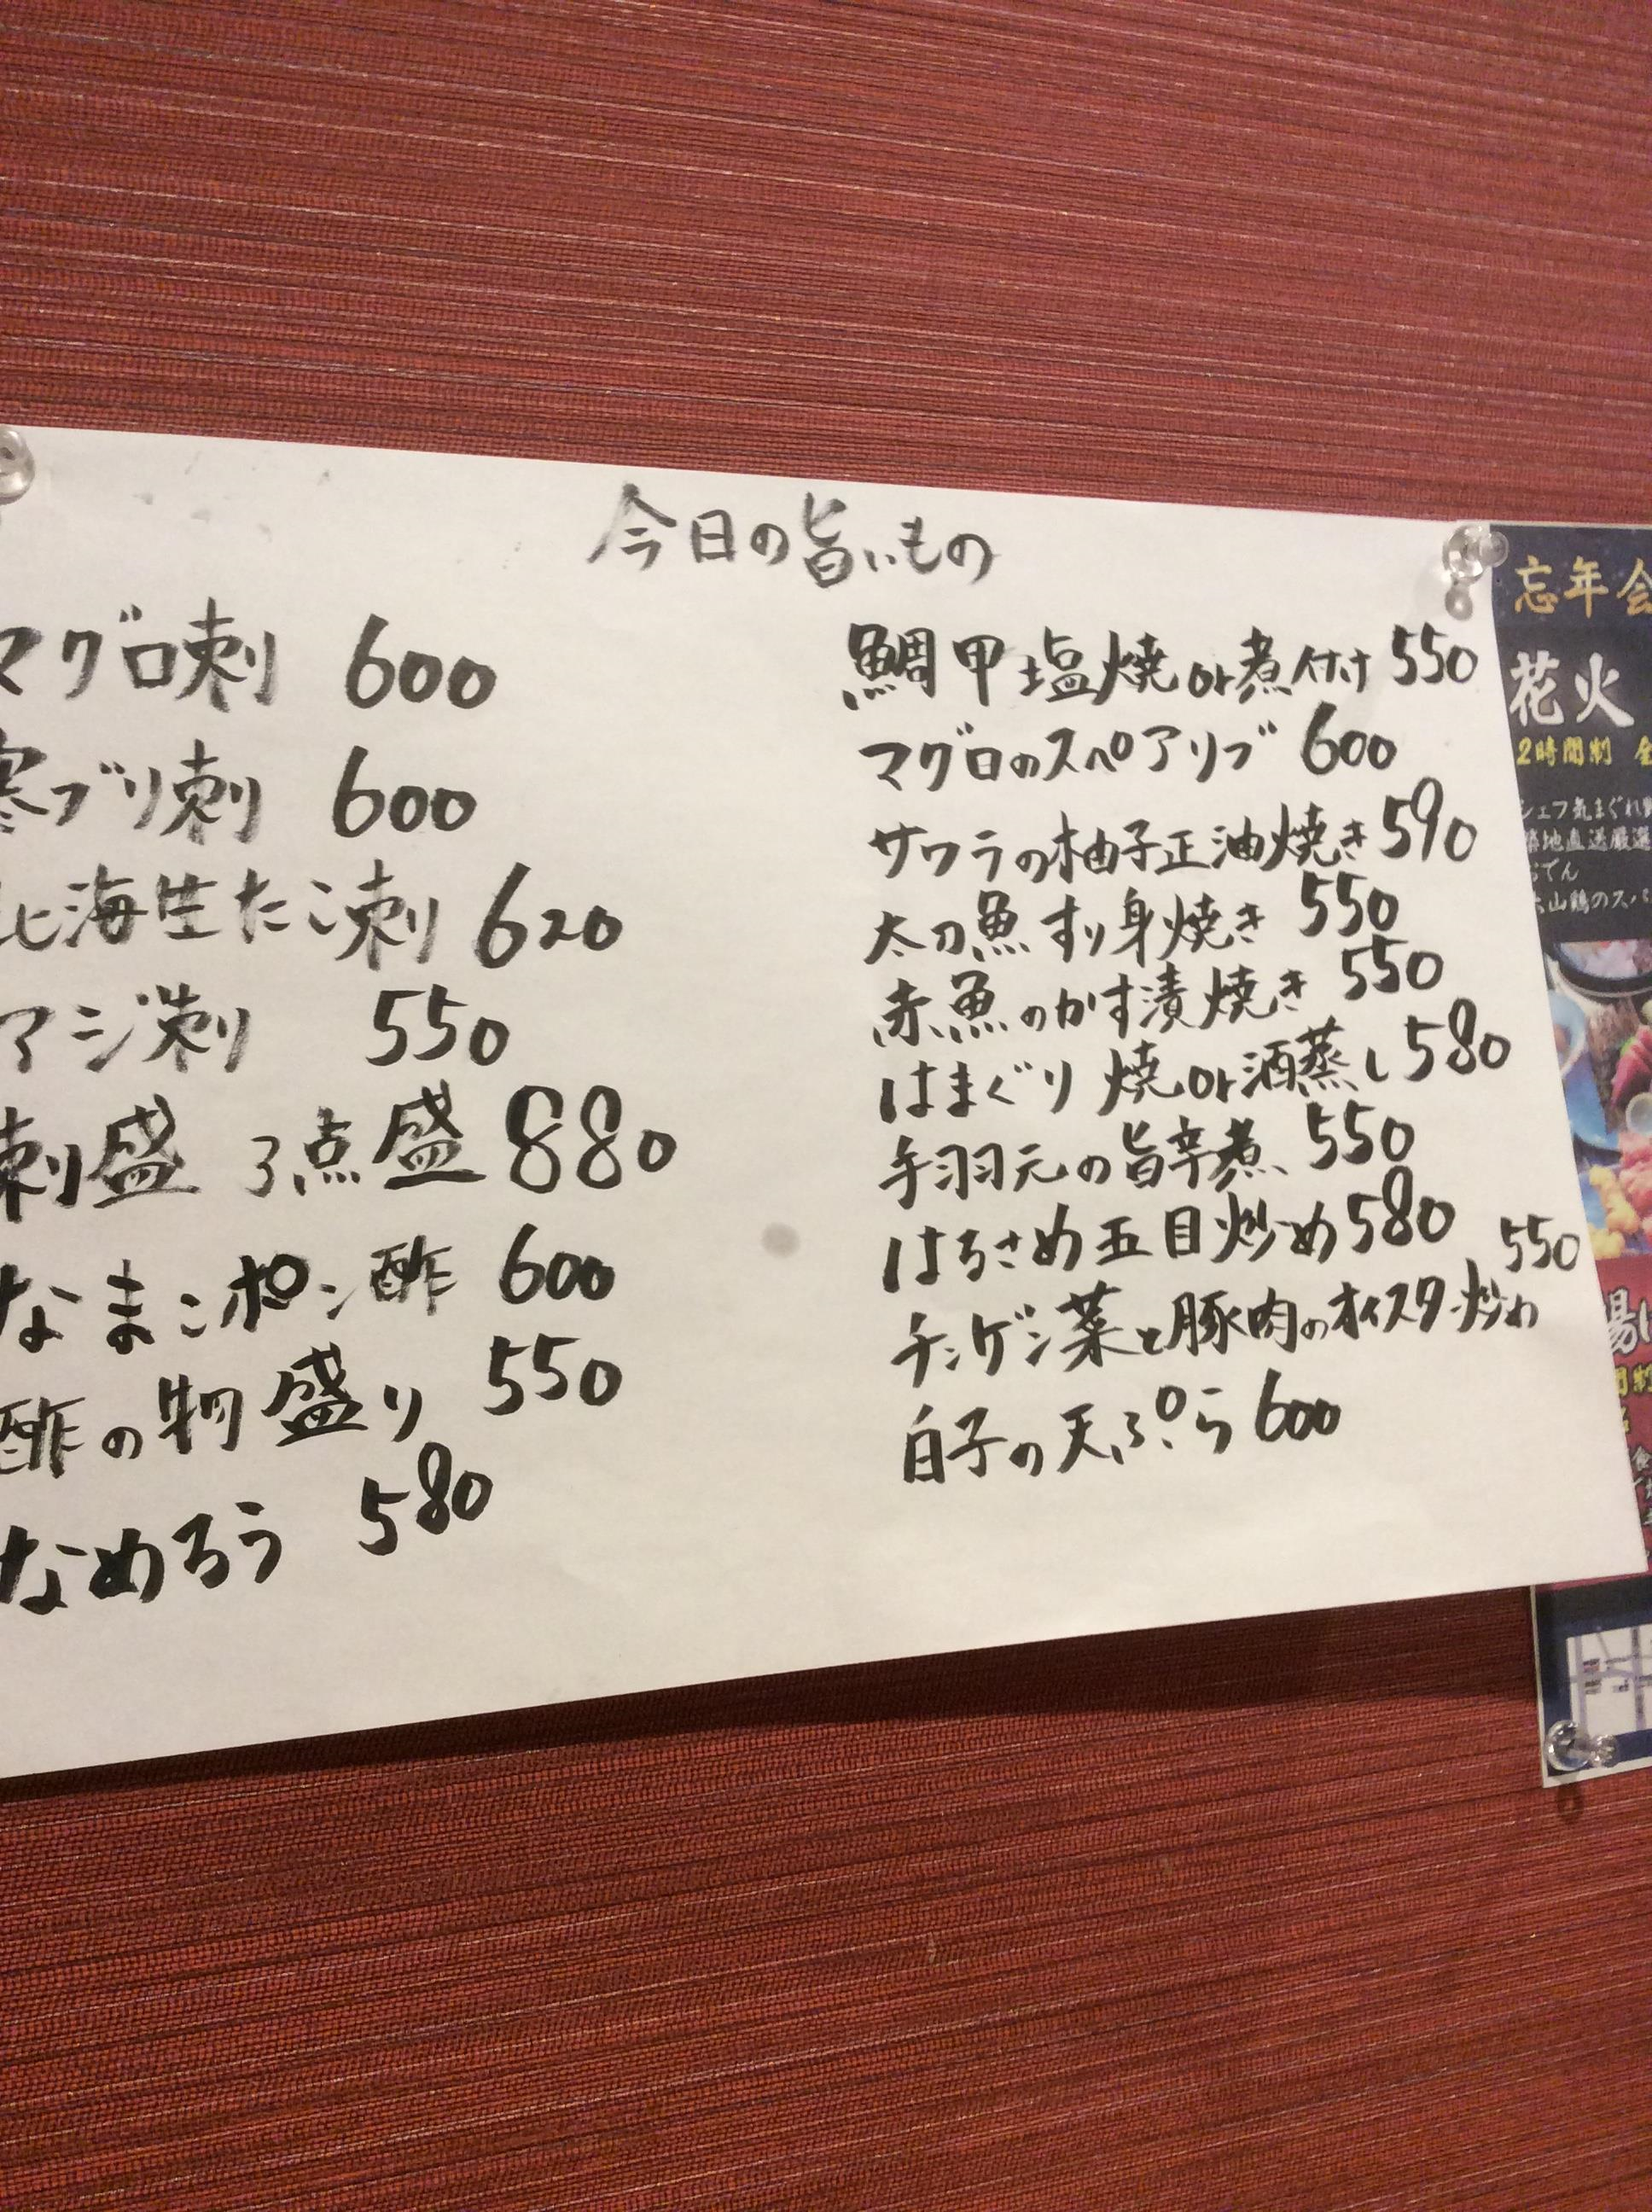 今日の旨いもの
マグロ刺 600
寒ブリ刺 600
北海生たこ刺 620
アジ刺 550
刺盛 3点盛 880
なまこポン酢 600
酢の物盛り 550
なめろう 580
鯛甲塩焼or煮付け 550
マグロのスペアリブ 600
サワラの柚子正油焼き 590
太刀魚すり身焼き 550
赤魚のかす漬焼き 550
はまぐり焼or酒蒸し 580
手羽元の旨辛煮 550
はるさめ五目炒め 580
チンゲン菜と豚肉のオイスター炒め 550
白子の天ぷら 600
忘年会
花火
2時間制 全
シェフ気まぐれ
築地直送厳選
おでん
大山鶏のスパ